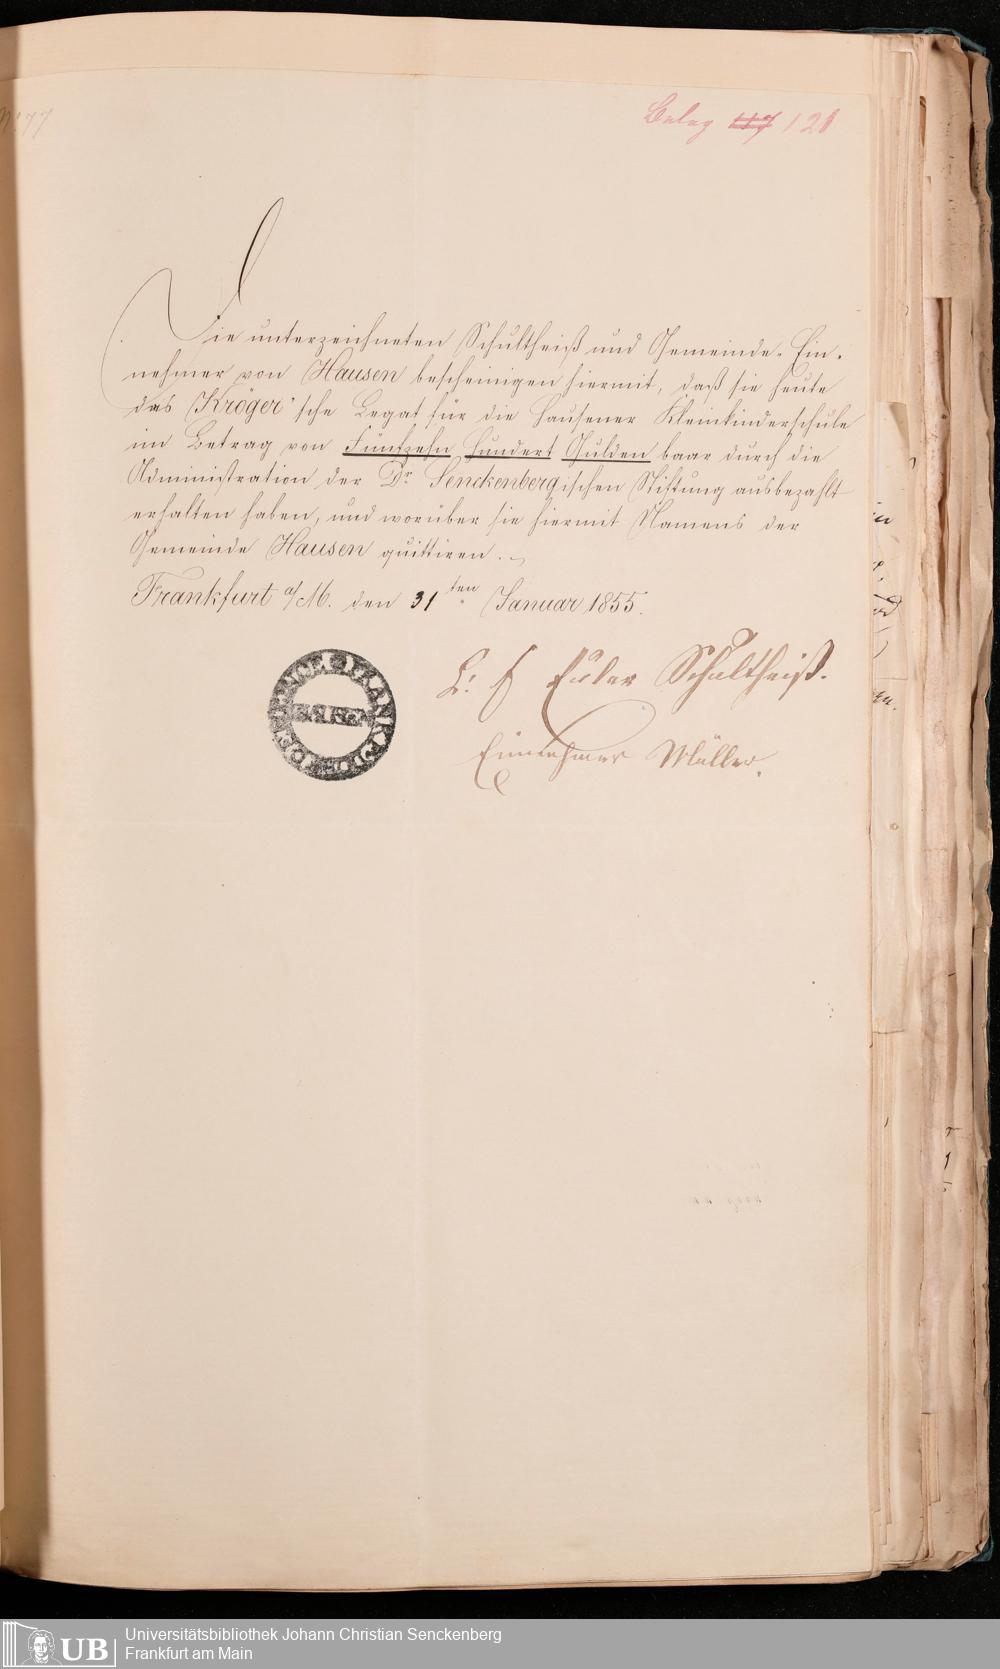 No 77
Beleg 117 121
Die unterzeichneten Schultheiß und Gemeinde-Ein-
nehmer von Hausen bescheinigen hiermit, daß sie heute
das Kröger'sche Legat für die Hausener Kleinkinderschule
im Betrag von Fünfzehn Hundert Gulden baar durch die
Administration der Dr. Senckenbergischen Stiftung ausbezahlt
erhalten haben, und worüber sie hiermit Namens der
Gemeinde Hausen quittiren.
Frankfurt a/M. den 31ten Januar 1855.
Euler Schultheiß.
Einnehmer Müller.
HAUSEN
UB
Universitätsbibliothek Johann Christian Senckenberg
Frankfurt am Main